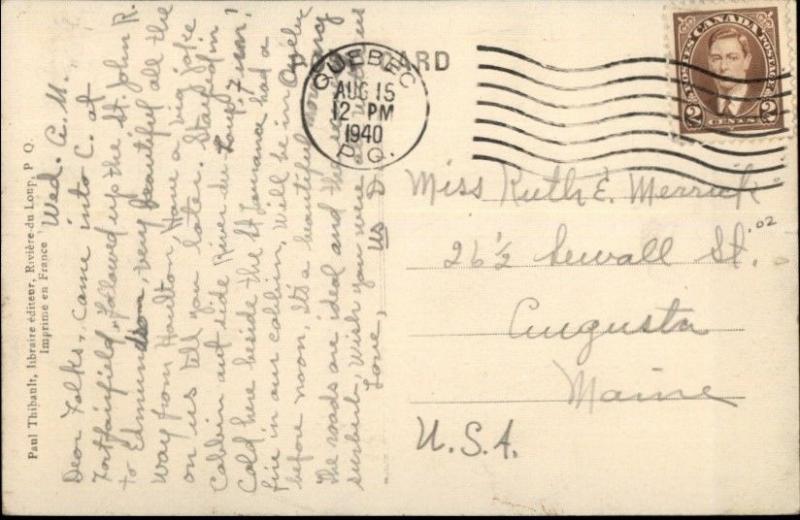 POST CARD
QUEBEC
AUG 15
12 PM
1940
P.Q.
POSTES CANADA POSTAGE
2 CENTS 2
Paul Thibault, libraire éditeur, Rivière-du Loup, P Q.
Imprime en France
Wed. A.M.
Dear Folks, Came into C. at
Fortfairfield, followed up the St. John R.
to Edmundson, very beautiful all the
way from Houlton, Have a big joke
on us tell you later. Stayed in
Cabbin out side River du Loup. 7 mi.
Cold here beside the St Lawrance had a
fire in our cabbin. Will be in Quebec
before noon. It's a beautiful morning
The roads are ideal and the
sunburb, Wish you were with us
Love,
Us
Miss Ruth E. Merrick
26½ Sewall St.
Augusta
Maine
U.S.A.
.02